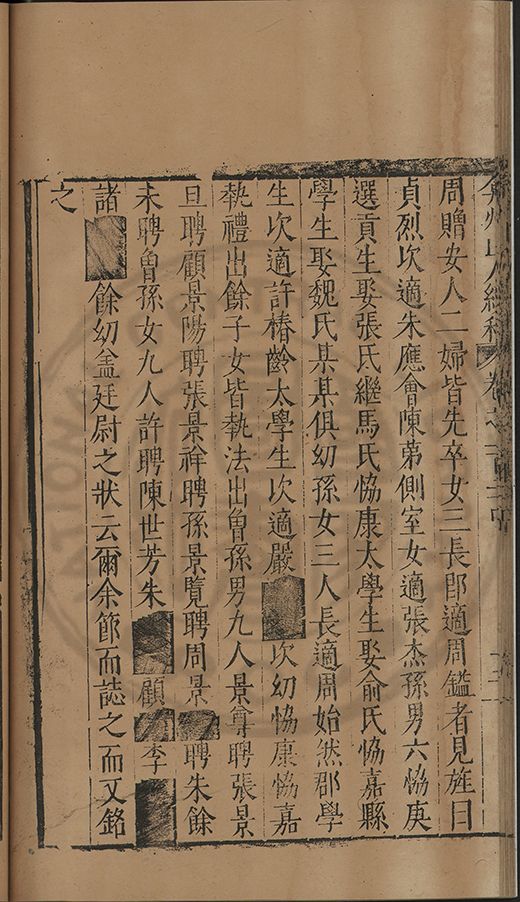 周贈安人二婦皆先卒女三長郎適周鑑者見旌曰
貞烈次適朱應會陳苐側室女適張杰孫男六恊庚
選貢生娶張氏繼馬氏恊康太學生娶俞氏恊嘉縣
學生娶魏氏某某俱幼孫女三人長適周始然郡學
生次適許椿齡太學生次適嚴 次幼恊康恊嘉
執禮出餘子女皆執法出曾孫男九人景尊聘張景
旦聘顧景陽聘張景祥聘孫景覽聘周景 聘朱餘
未聘曾孫女九人許聘陳世芳朱 顧 李
諸 餘幼盖廷尉之狀云爾余節而誌之而又銘
之